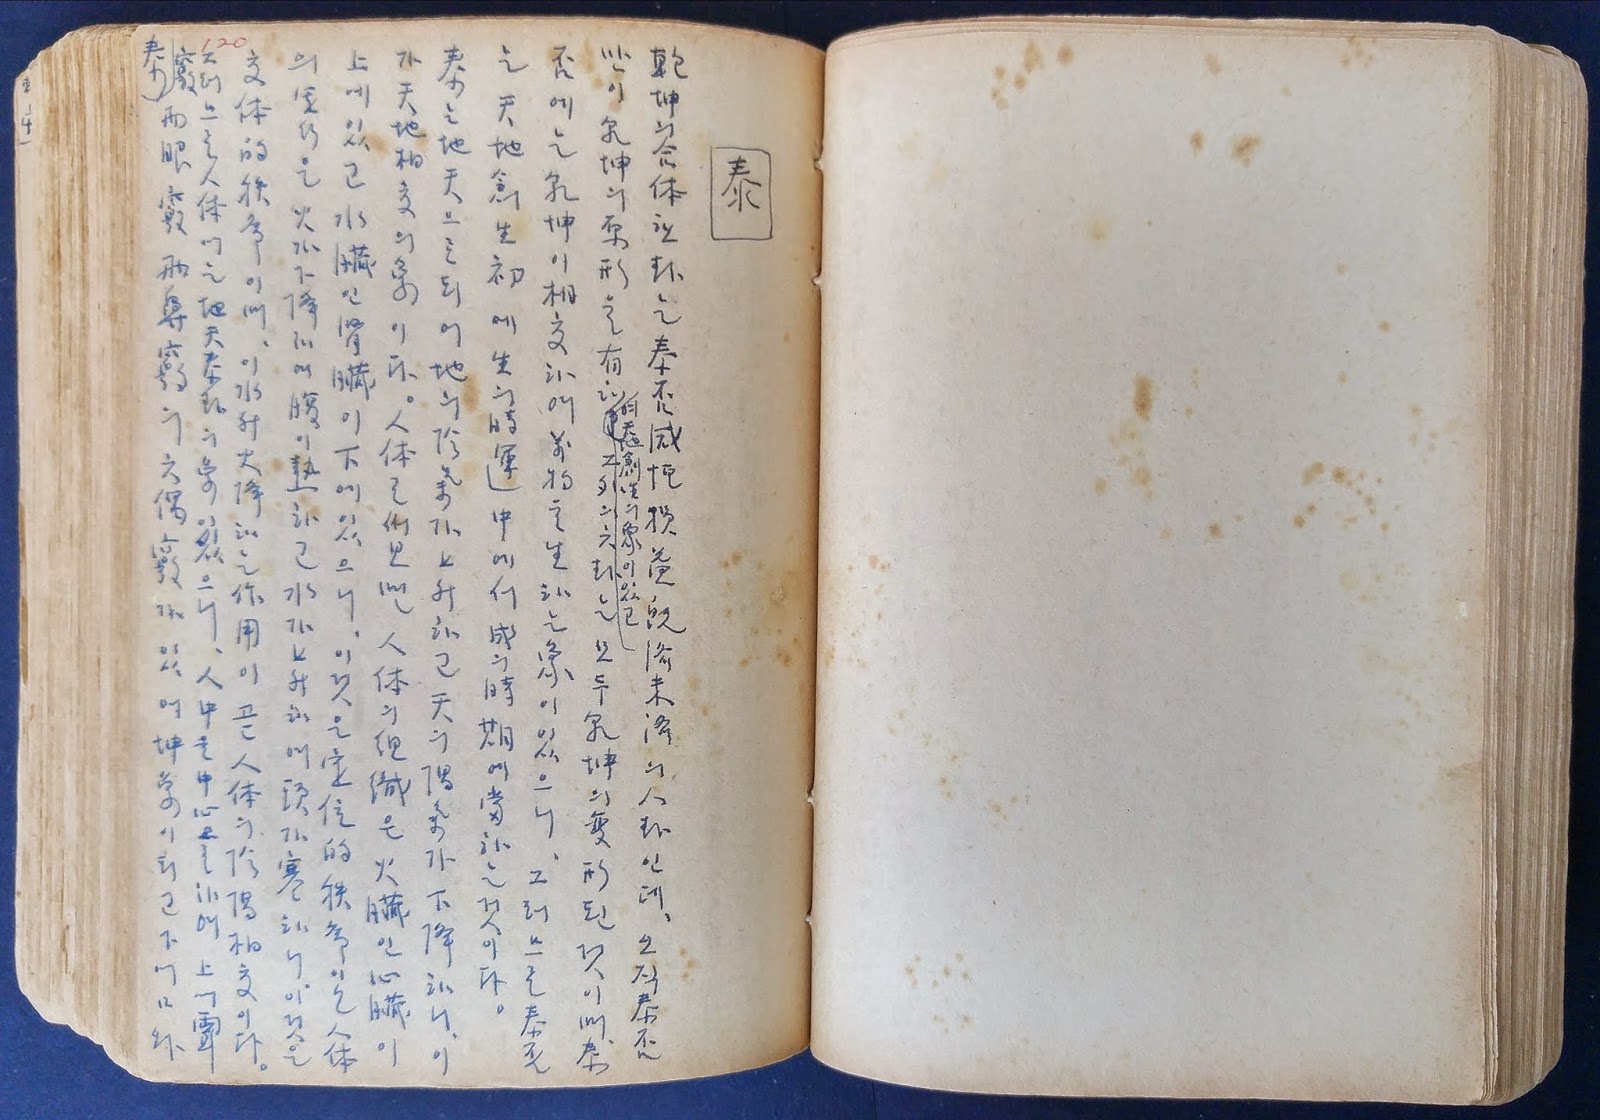 泰
乾坤의 合体한 卦는 泰否咸恒損益既濟未濟의 八卦인데、오직 泰否
만이 乾坤의 原形을 有하여 天地創生의 象이 있고 그外의 六卦는 모두 乾坤의 變形된 것이며、泰
否에는 乾坤이 相交하여 萬物을 生하는 象이 있으니、그러므로 泰否
는 天地創生初에 生의 時運中에서 成의 時期에 當하는 것이다。
泰는 地天으로 되어 地의 陰氣가 上升하고 天의 陽氣가 下降하니、이
가 天地相交의 象이다。人体로써 보면 人体의 組織은 火臟인 心臟이
上에 있고 水臟인 腎臟이 下에 있으니、이것은 定位的 秩序이오 人体
의 運行은 火가 下降하여 腹이 熱하고 水가 上升하여 頭가 寒하니、이것은
交体的 秩序이며、이 水升火降하는 作用이 곧 人体의 陰陽相交이다。
그러므로 人体에는 地天泰卦의 象이 있으니、人中을 中心으로 하여 上에 耳
竅 兩眼竅 兩鼻竅의 六偶竅가 있어 坤象이 되고 下에 口와
泰
120